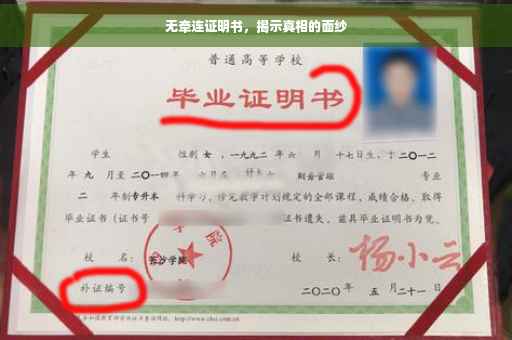 无牵连证明书，揭示真相的面纱
普通高等学校
毕业证明书
学生 性别 女，一九九二年六 月 十七日生，于二〇一二
年 九 月至 二〇一四 年 六月在 财务管理 专业
二 年制 专升本 科学习，修完教学计划规定的全部课程，成绩合格，取得
毕业证书（证书号 证书遗失，兹具毕业证明书为凭。
校 名： 长沙学院 校 长： 杨小云
补证编号 二〇二〇年 五 月二十一日